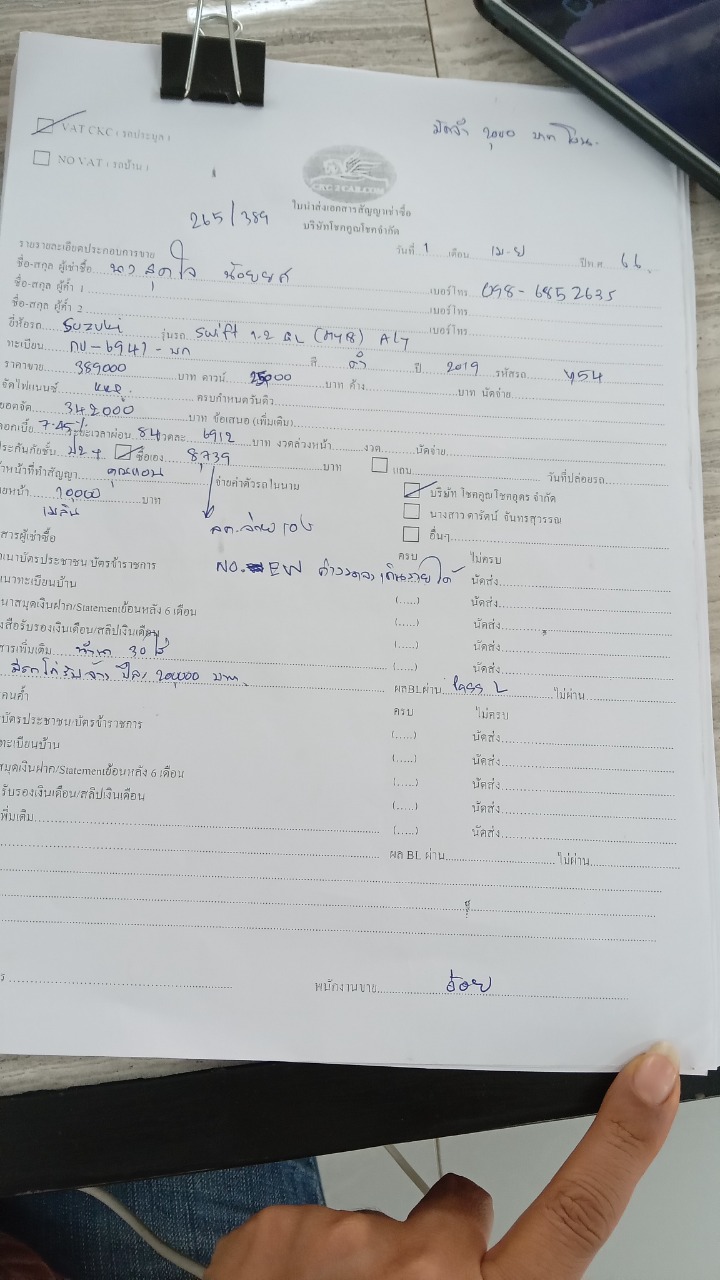 มัดจำ 2000 บาท โอน.
VAT CKC (รถประมูล)
NO VAT (รถบ้าน)
CKC 2 CAR.COM
265/389
ใบนำส่งเอกสารสัญญาเช่าซื้อ
บริษัทโชคคูณโชคจำกัด
รายรายละเอียดประกอบการขาย วันที่ 1 เดือน เม.ย ปีพ.ศ. 66.
ชื่อ-สกุล ผู้เช่าซื้อ สุดใจ น้อยยศ เบอร์โทร 098-6852635
ชื่อ-สกุล ผู้ค้ำ 1 เบอร์โทร
ชื่อ-สกุล ผู้ค้ำ 2 เบอร์โทร
ยี่ห้อรถ Suzuki รุ่นรถ Swift 1.2 GL
ทะเบียน 6947 สี ดำ ปี 2019 รหัสรถ 454
ราคาขาย 389000 บาท ดาวน์ บาท ค้าง บาท นัดจ่าย
จัดไฟแนนซ์ ครบกำหนดวันคิว
ยอดจัด 342000 บาท ข้อเสนอ (เพิ่มเติม)
ดอกเบี้ย 7.45% ระยะเวลาผ่อน 84 งวดละ 6912 บาท งวดล่วงหน้า งวด นัดจ่าย
ประกันภัยชั้น ป2+ ซื้อเอง 8,739 บาท แถม วันที่ปล่อยรถ
หน้าที่ทำสัญญา จ่ายค่าตัวรถในนาม บริษัท โชคคูณโชคอุดร จำกัด
ยหน้า 10,000 บาท นางสาว ดารัตน์ จันทรสุวรรณ
เมลิน อื่นๆ
สารผู้เช่าซื้อ ครบ ไม่ครบ
เนาบัตรประชาชน บัตรข้าราชการ NO. EW นัดส่ง
เนาทะเบียนบ้าน (.....) นัดส่ง
นาสมุดเงินฝาก/Statementย้อนหลัง 6 เดือน (.....) นัดส่ง
งสือรับรองเงินเดือน/สลิปเงินเดือน (.....) นัดส่ง
สารเพิ่มเติม ทำนา 30 ไร่ (.....) นัดส่ง
รับจ้าง ปีละ 200,000 บาท. ผลBLผ่าน Pass L ไม่ผ่าน
คนค้ำ ครบ ไม่ครบ
บัตรประชาชน/บัตรข้าราชการ (.....) นัดส่ง
ทะเบียนบ้าน (.....) นัดส่ง
สมุดเงินฝาก/Statementย้อนหลัง 6 เดือน (.....) นัดส่ง
รับรองเงินเดือน/สลิปเงินเดือน (.....) นัดส่ง
พิ่มเติม (.....) นัดส่ง
ผล BL ผ่าน ไม่ผ่าน
พนักงานขาย อ้อย